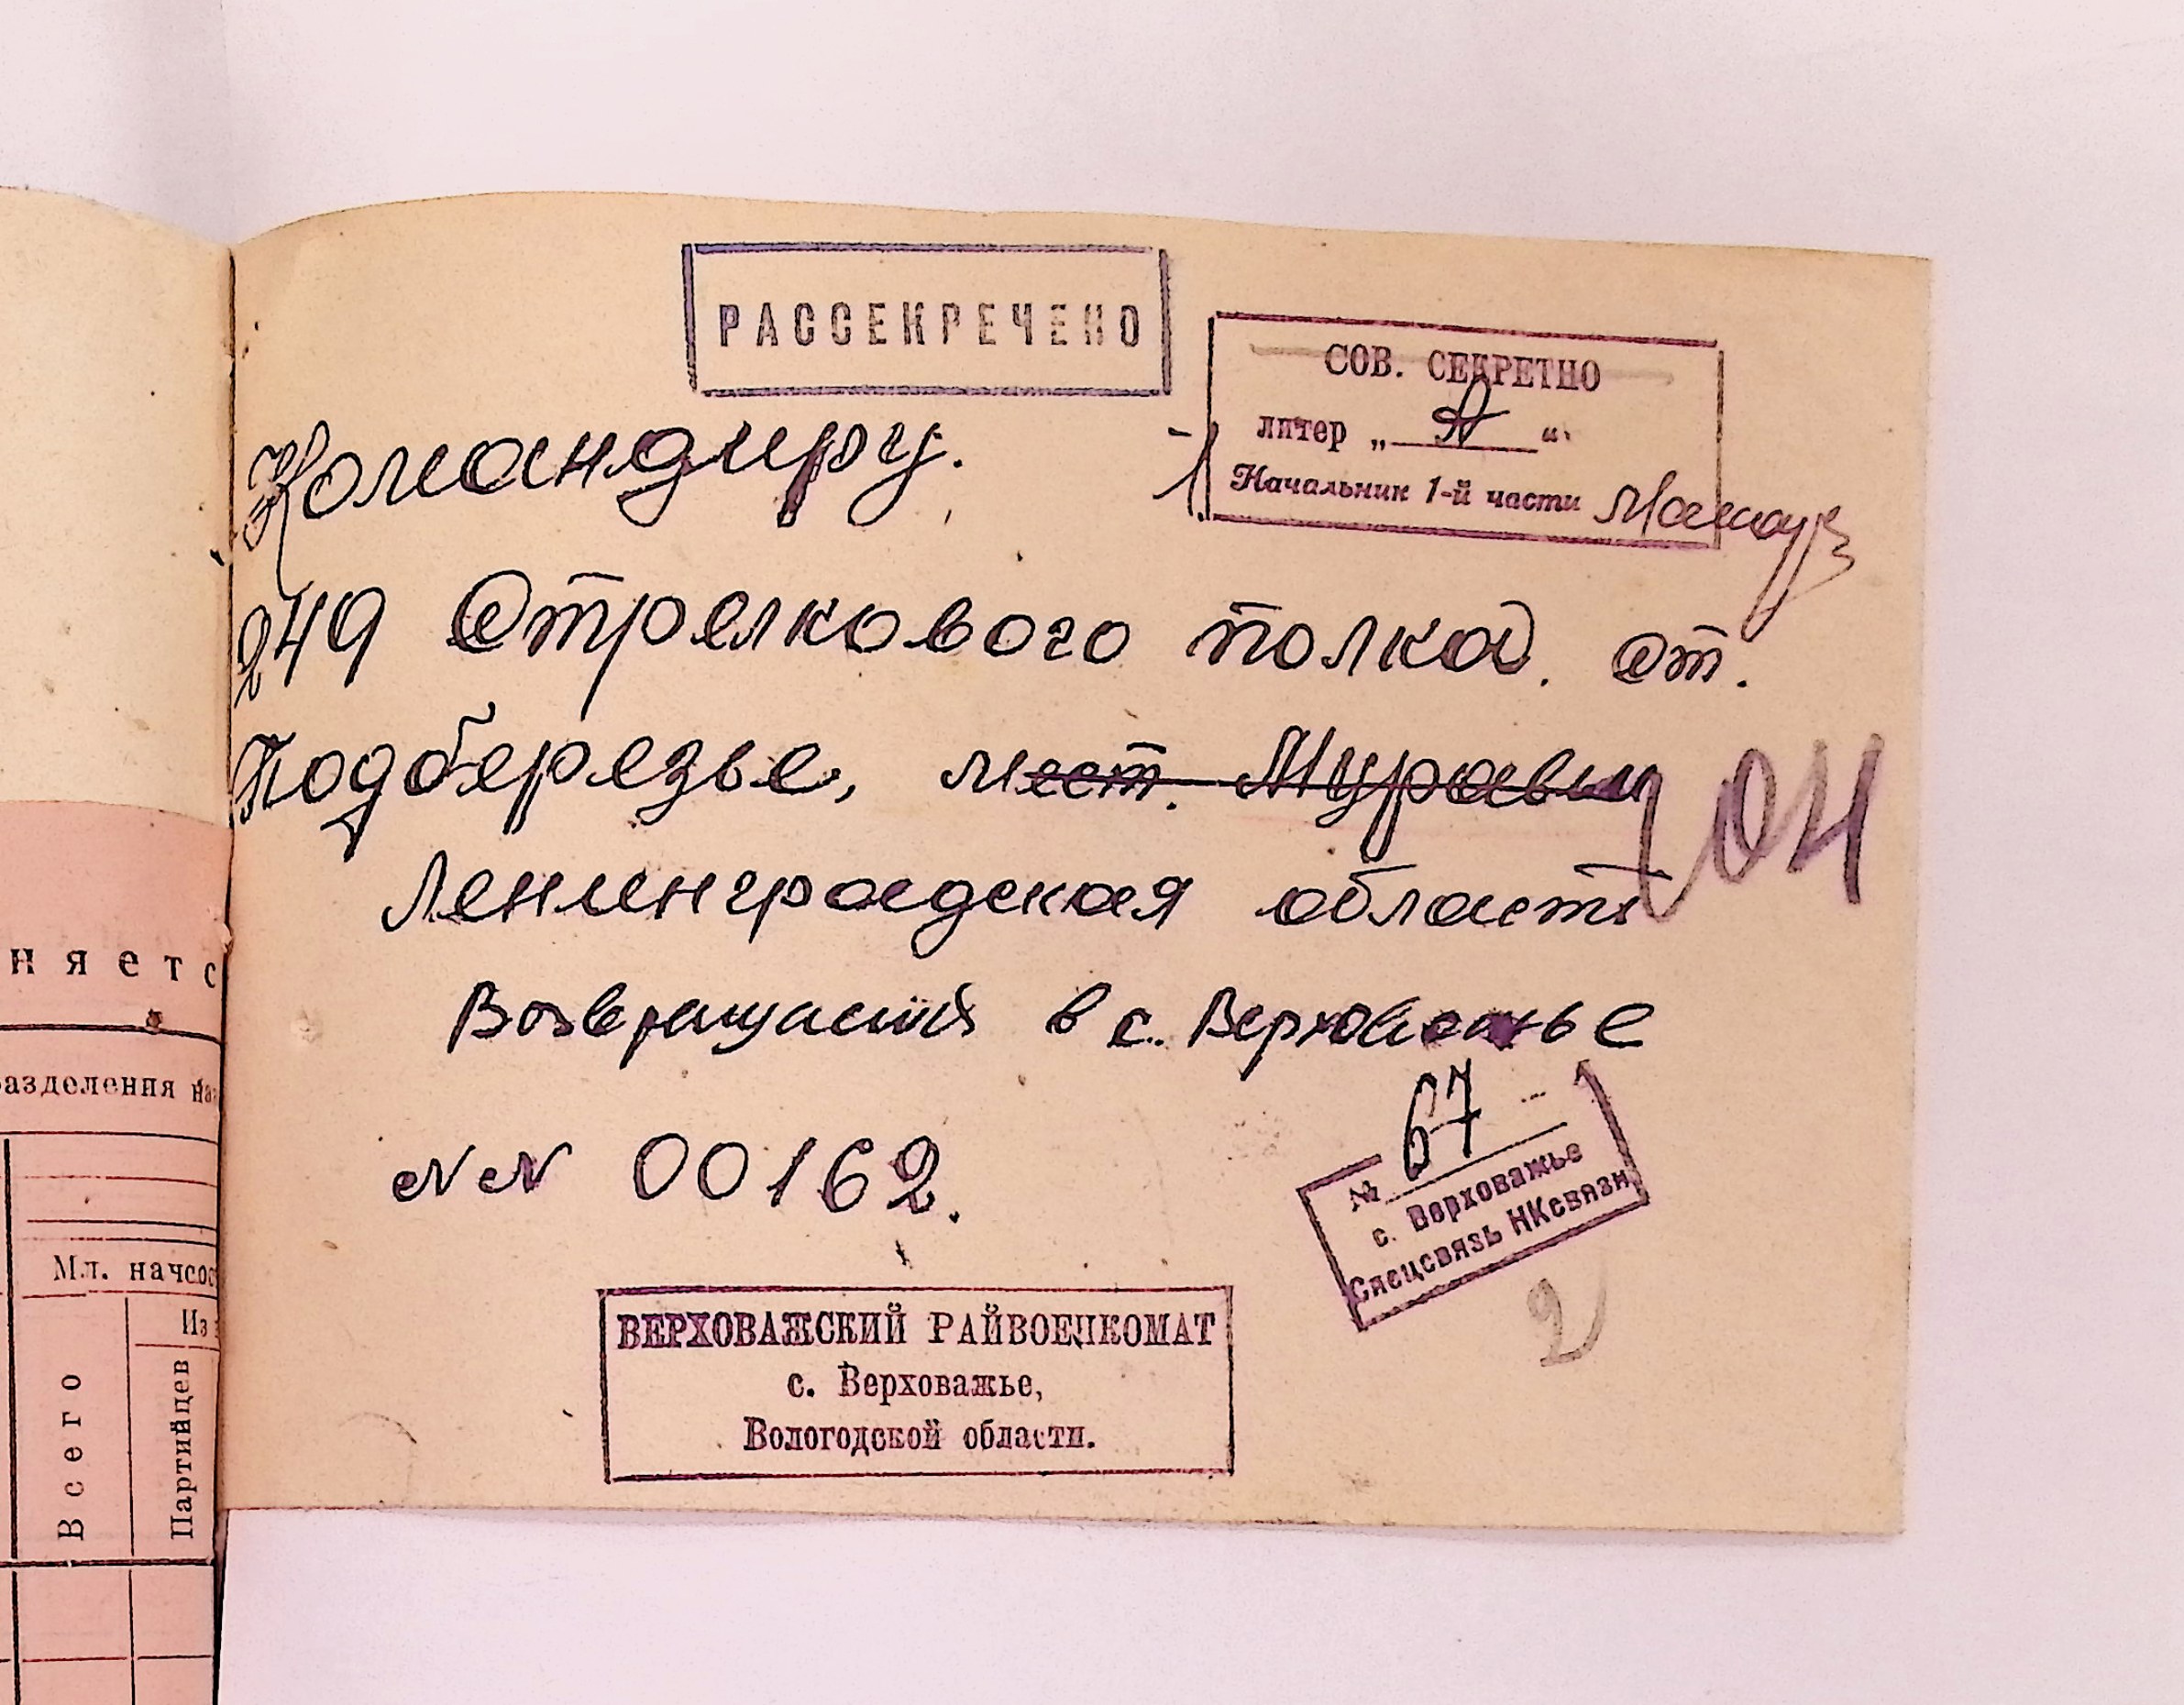 РАССЕКРЕЧЕНО
СОВ. СЕКРЕТНО
литер „ А “
Начальник 1-й части
Командиру.
249 Стрелкового полка. ст.
Подберезье, мест. Муравьи
Ленинградская область
Возвращается в с. Верховажье
№№ 00162.
№ 67
с. Верховажье
Спецсвязь НКсвязи
2
ВЕРХОВАЖСКИЙ РАЙВОЕНКОМАТ
с. Верховажье,
Вологодской области.
няетс
разделения на
Мл. начсос
Из
Всего
Партийцев